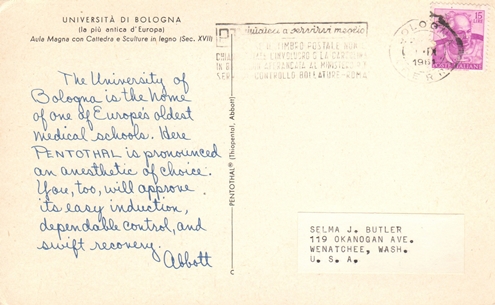 UNIVERSITÀ DI BOLOGNA
(la più antica d'Europa)
Aula Magna con Cattedra e Sculture in legno (Sec. XVII)
The University of
Bologna is the home
of one of Europe's oldest
medical schools. Here
PENTOTHAL is pronounced
an anesthetic of choice.
You, too, will approve
its easy induction,
dependable control, and
swift recovery.
Abbott
PENTOTHAL® (Thiopental, Abbott)
a servirvi meglio
IL TIMBRO POSTALE NON
O LA CARTOLINA
AL MINISTERO
CONTROLLO BOLLATURE-ROMA
BOLOGNA
15
POSTE ITALIANE
SELMA J. BUTLER
119 OKANOGAN AVE.
WENATCHEE, WASH.
U. S. A.